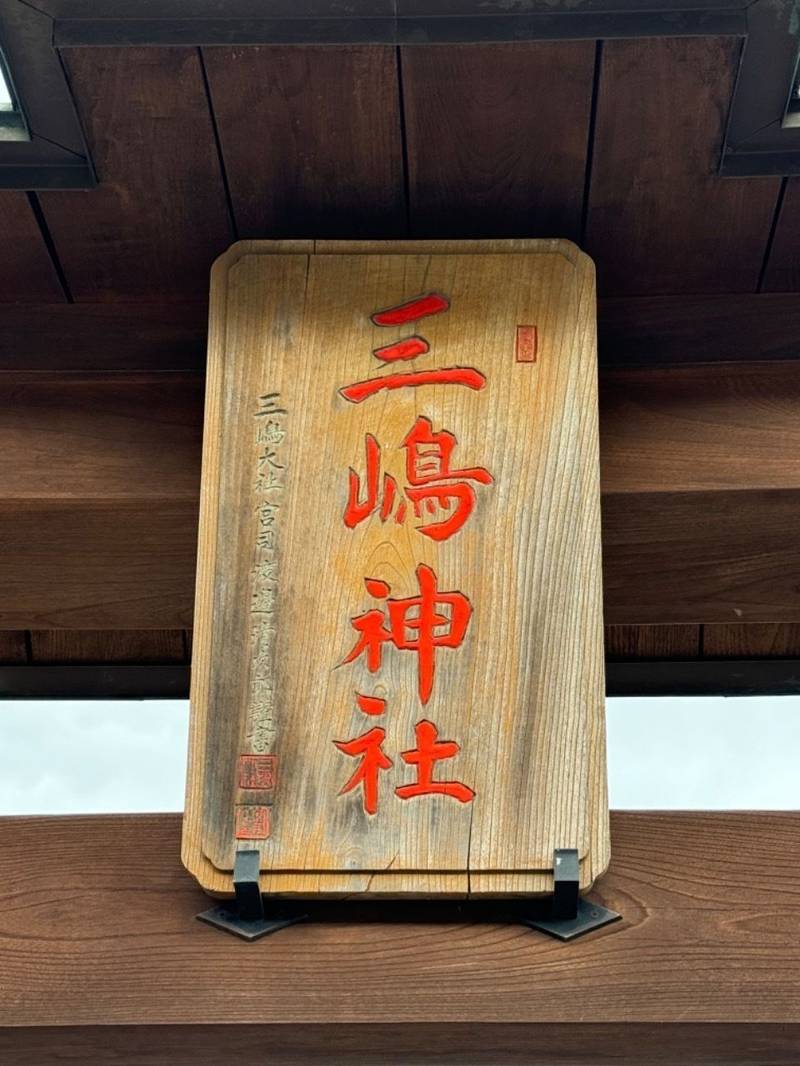 三嶋神社
三嶋大社宮司
謹書